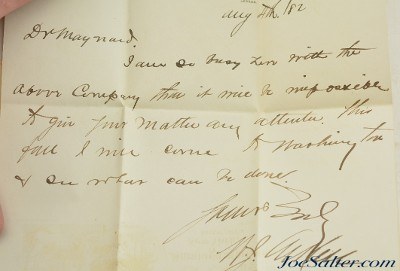 Aug 5th /82
Dr Maynard.
I am so busy here with the
above Company that it will be impossible
to give your matter any attention this
fall I will come to Washington
& see what can be done.
Yours Truly
JoeSalter.com